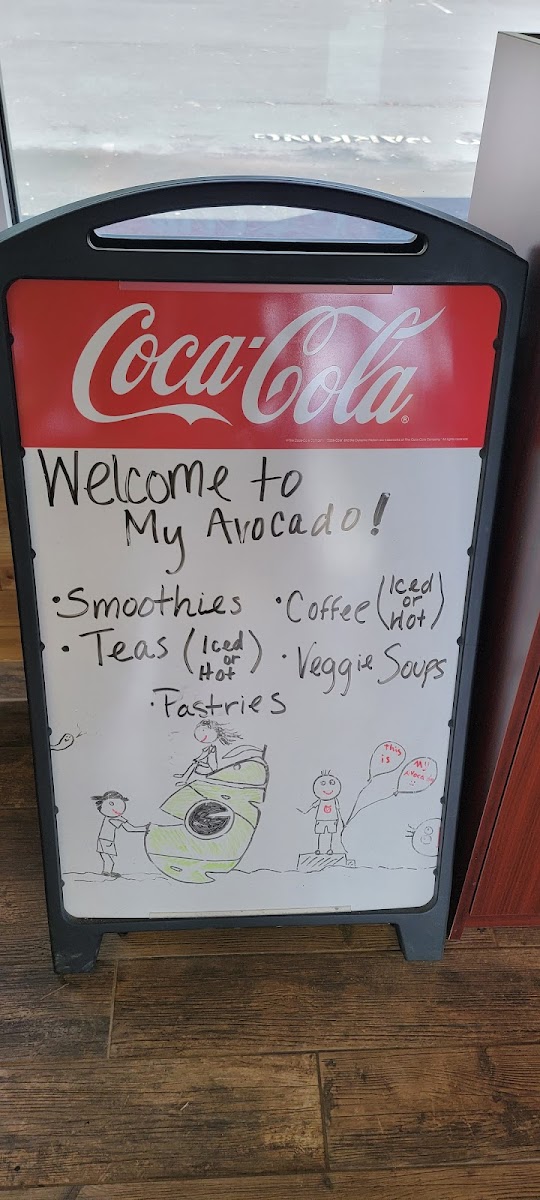 Coca-Cola
Welcome to
My Avocado!
• Smoothies
• Coffee (Iced or Hot)
• Teas (Iced or Hot)
• Veggie Soups
• Pastries
This is
My Avocado